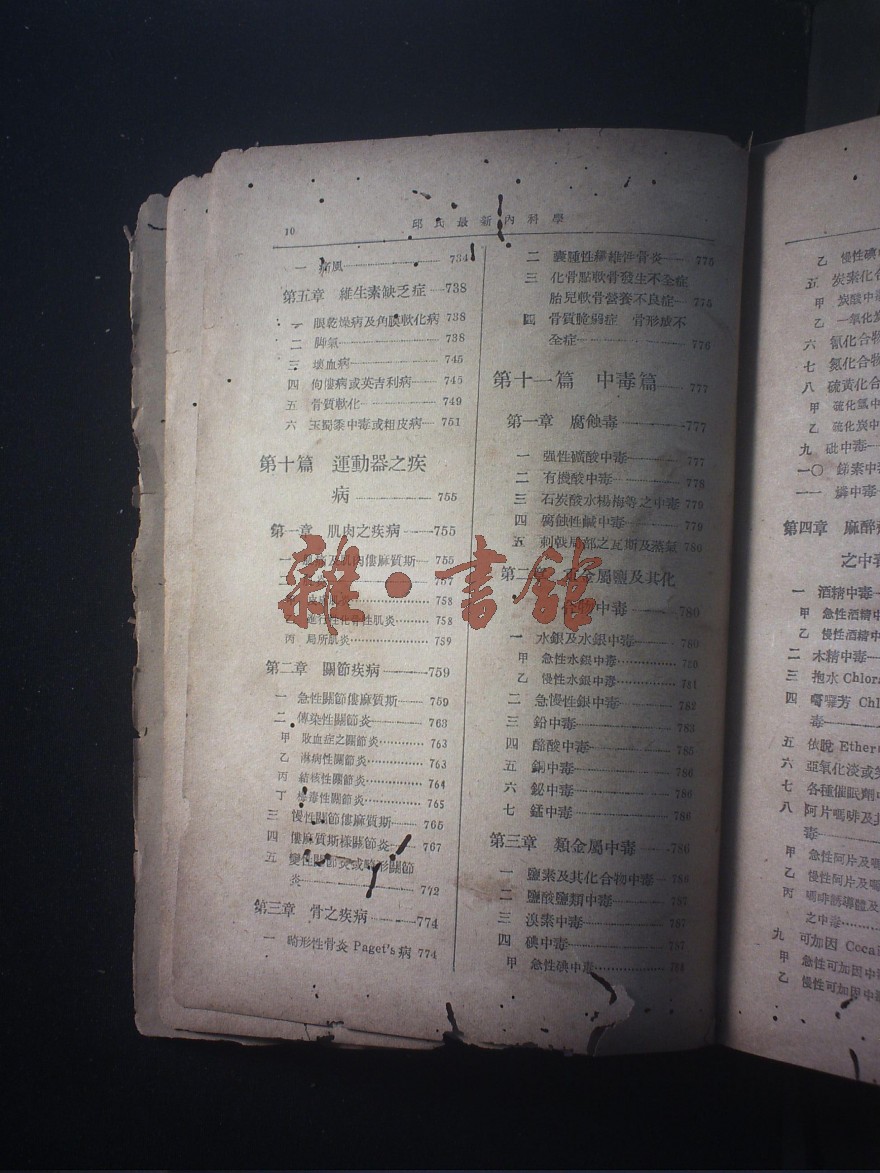 10
邱氏最新內科學
一 痛風 734
第五章 維生素缺乏症 738
一 眼乾燥病及角膜軟化病 738
二 脚氣 738
三 壞血病 745
四 佝僂病或英吉利病 745
五 骨質軟化 749
六 玉蜀黍中毒或粗皮病 751
第十篇 運動器之疾
病 755
第一章 肌肉之疾病 755
肌肉僂麻質斯 755
757
758
乙 進行性化骨性肌炎 758
丙 局所肌炎 759
第二章 關節疾病 759
一 急性關節僂麻質斯 759
二 傳染性關節炎 763
甲 敗血症之關節炎 763
乙 淋病性關節炎 763
丙 結核性關節炎 764
丁 梅毒性關節炎 765
三 慢性關節僂麻質斯 765
四 僂麻質斯樣關節炎 767
五 變性關節炎或畸形關節
炎 772
第三章 骨之疾病 774
一 畸形性骨炎 Paget's病 774
二 囊腫性纖維性骨炎 775
三 化骨點軟骨發生不全症
胎兒軟骨營養不良症 775
四 骨質脆弱症 骨形成不
全症 776
第十一篇 中毒篇 777
第一章 腐蝕毒 777
一 强性礦酸中毒 777
二 有機酸中毒 778
三 石炭酸水楊梅等之中毒 779
四 腐蝕性鹹中毒 779
五 刺戟局部之瓦斯及蒸氣 780
第二章 重金屬鹽及其化
合物中毒 780
一 水銀及水銀中毒 780
甲 急性水銀中毒 780
乙 慢性水銀中毒 781
二 急慢性銀中毒 782
三 鉛中毒 783
四 醋酸中毒 785
五 銅中毒 786
六 鉍中毒 786
七 錳中毒 786
第三章 類金屬中毒 786
一 鹽素及其化合物中毒 786
二 鹽酸鹽類中毒 787
三 溴素中毒 787
四 碘中毒 787
甲 急性碘中毒 788
乙 慢性碘中
五 炭素化合
甲 炭酸中毒
乙 一氧化炭
六 氰化合物
七 氮化合物
八 硫黃化合
甲 硫化氫中
乙 硫化炭中
九 砒中毒
一〇 銻素中
一一 燐中毒
第四章 麻醉
之中毒
一 酒精中毒
甲 急性酒精中
乙 慢性酒精中
二 木精中毒
三 抱水 Chlora
四 嚼囉芳 Chl
毒
五 依脫 Ether
六 亞氧化淡或
七 各種催眠劑中
八 阿片嗎啡及
毒
甲 急性阿片及嗎
乙 慢性阿片及嗎
丙 嗎啡誘導體及
之中毒
九 可加因 Cocai
甲 急性可加因中
乙 慢性可加因中
雜·書館